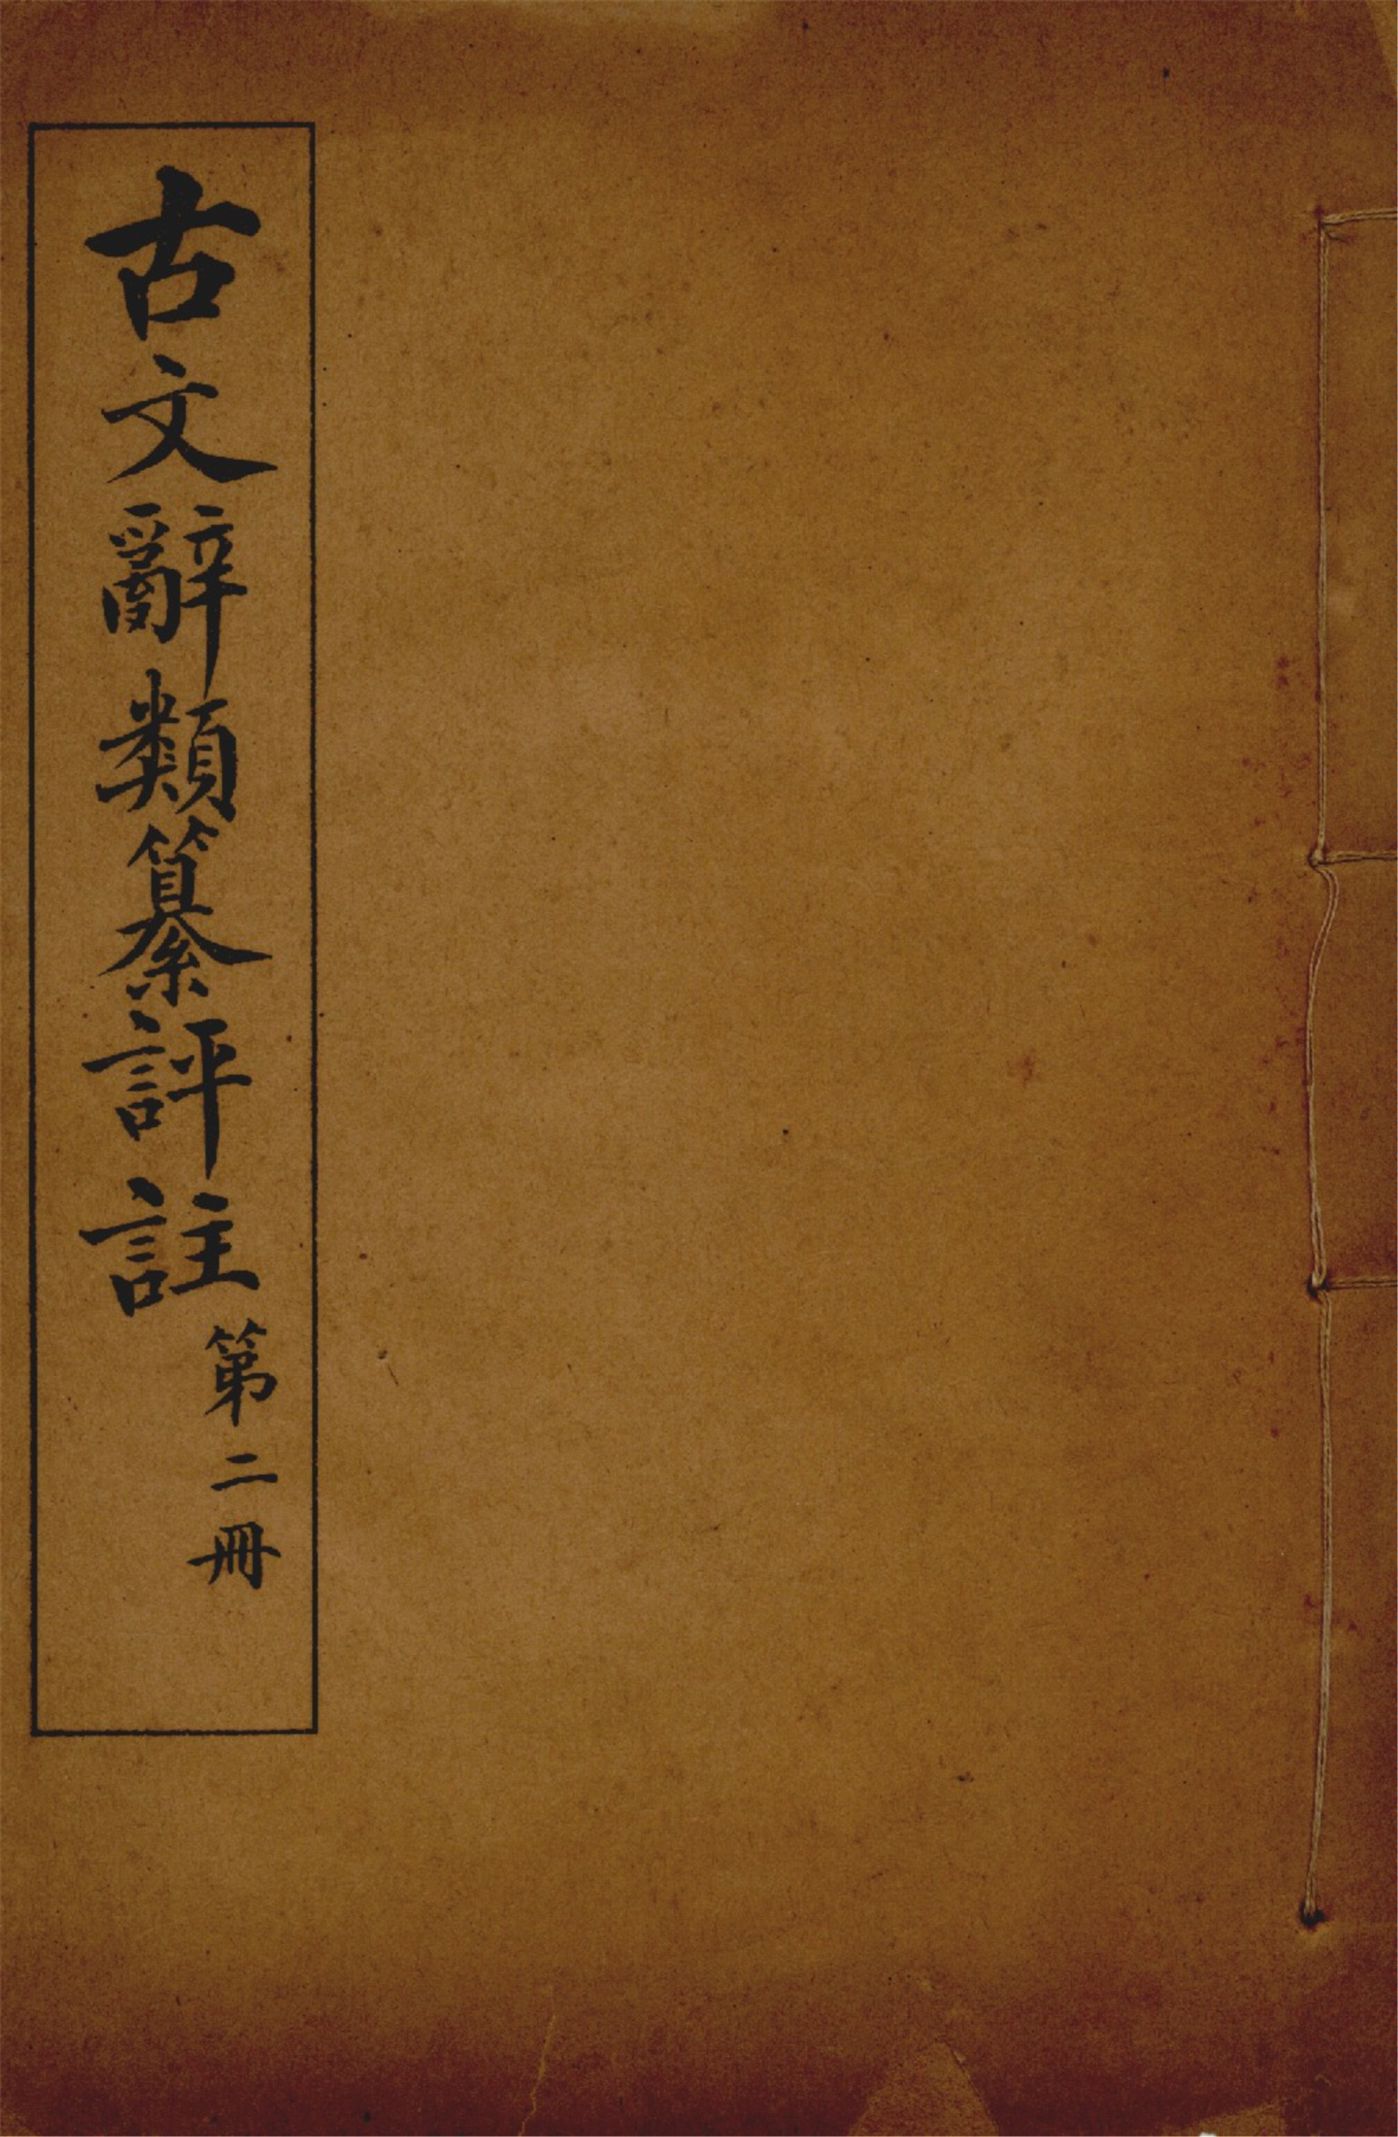 古文辭類纂評註
第二冊